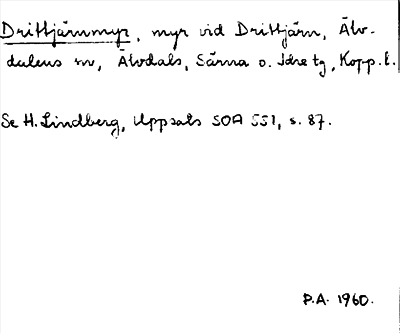 Drittjärnmyr, myr vid Drittjärn, Älv-
dalens sn, Älvdals, Särna o. Idre tg, Kopp. l.
Se H. Lindberg, Uppsats SOA 551, s. 87.
P.A. 1960.